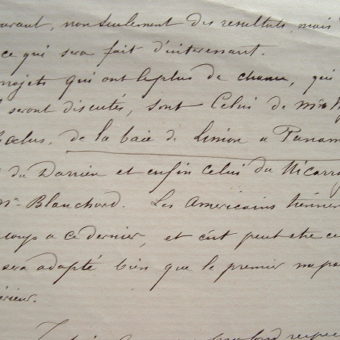 courant, non seulement des resultats, mais
ce qui sera fait d'interessant.
projets qui ont le plus de chance, qui
seront discutés, sont Celui de Mr
de la baie de Limon a Panam
du Darien et enfin celui du Nicara
Mr Blanchard. Les Americains tiennen
coup a ce dernier, et c'est peut etre ce
sera adopté bien que le premier me pa
érieur.